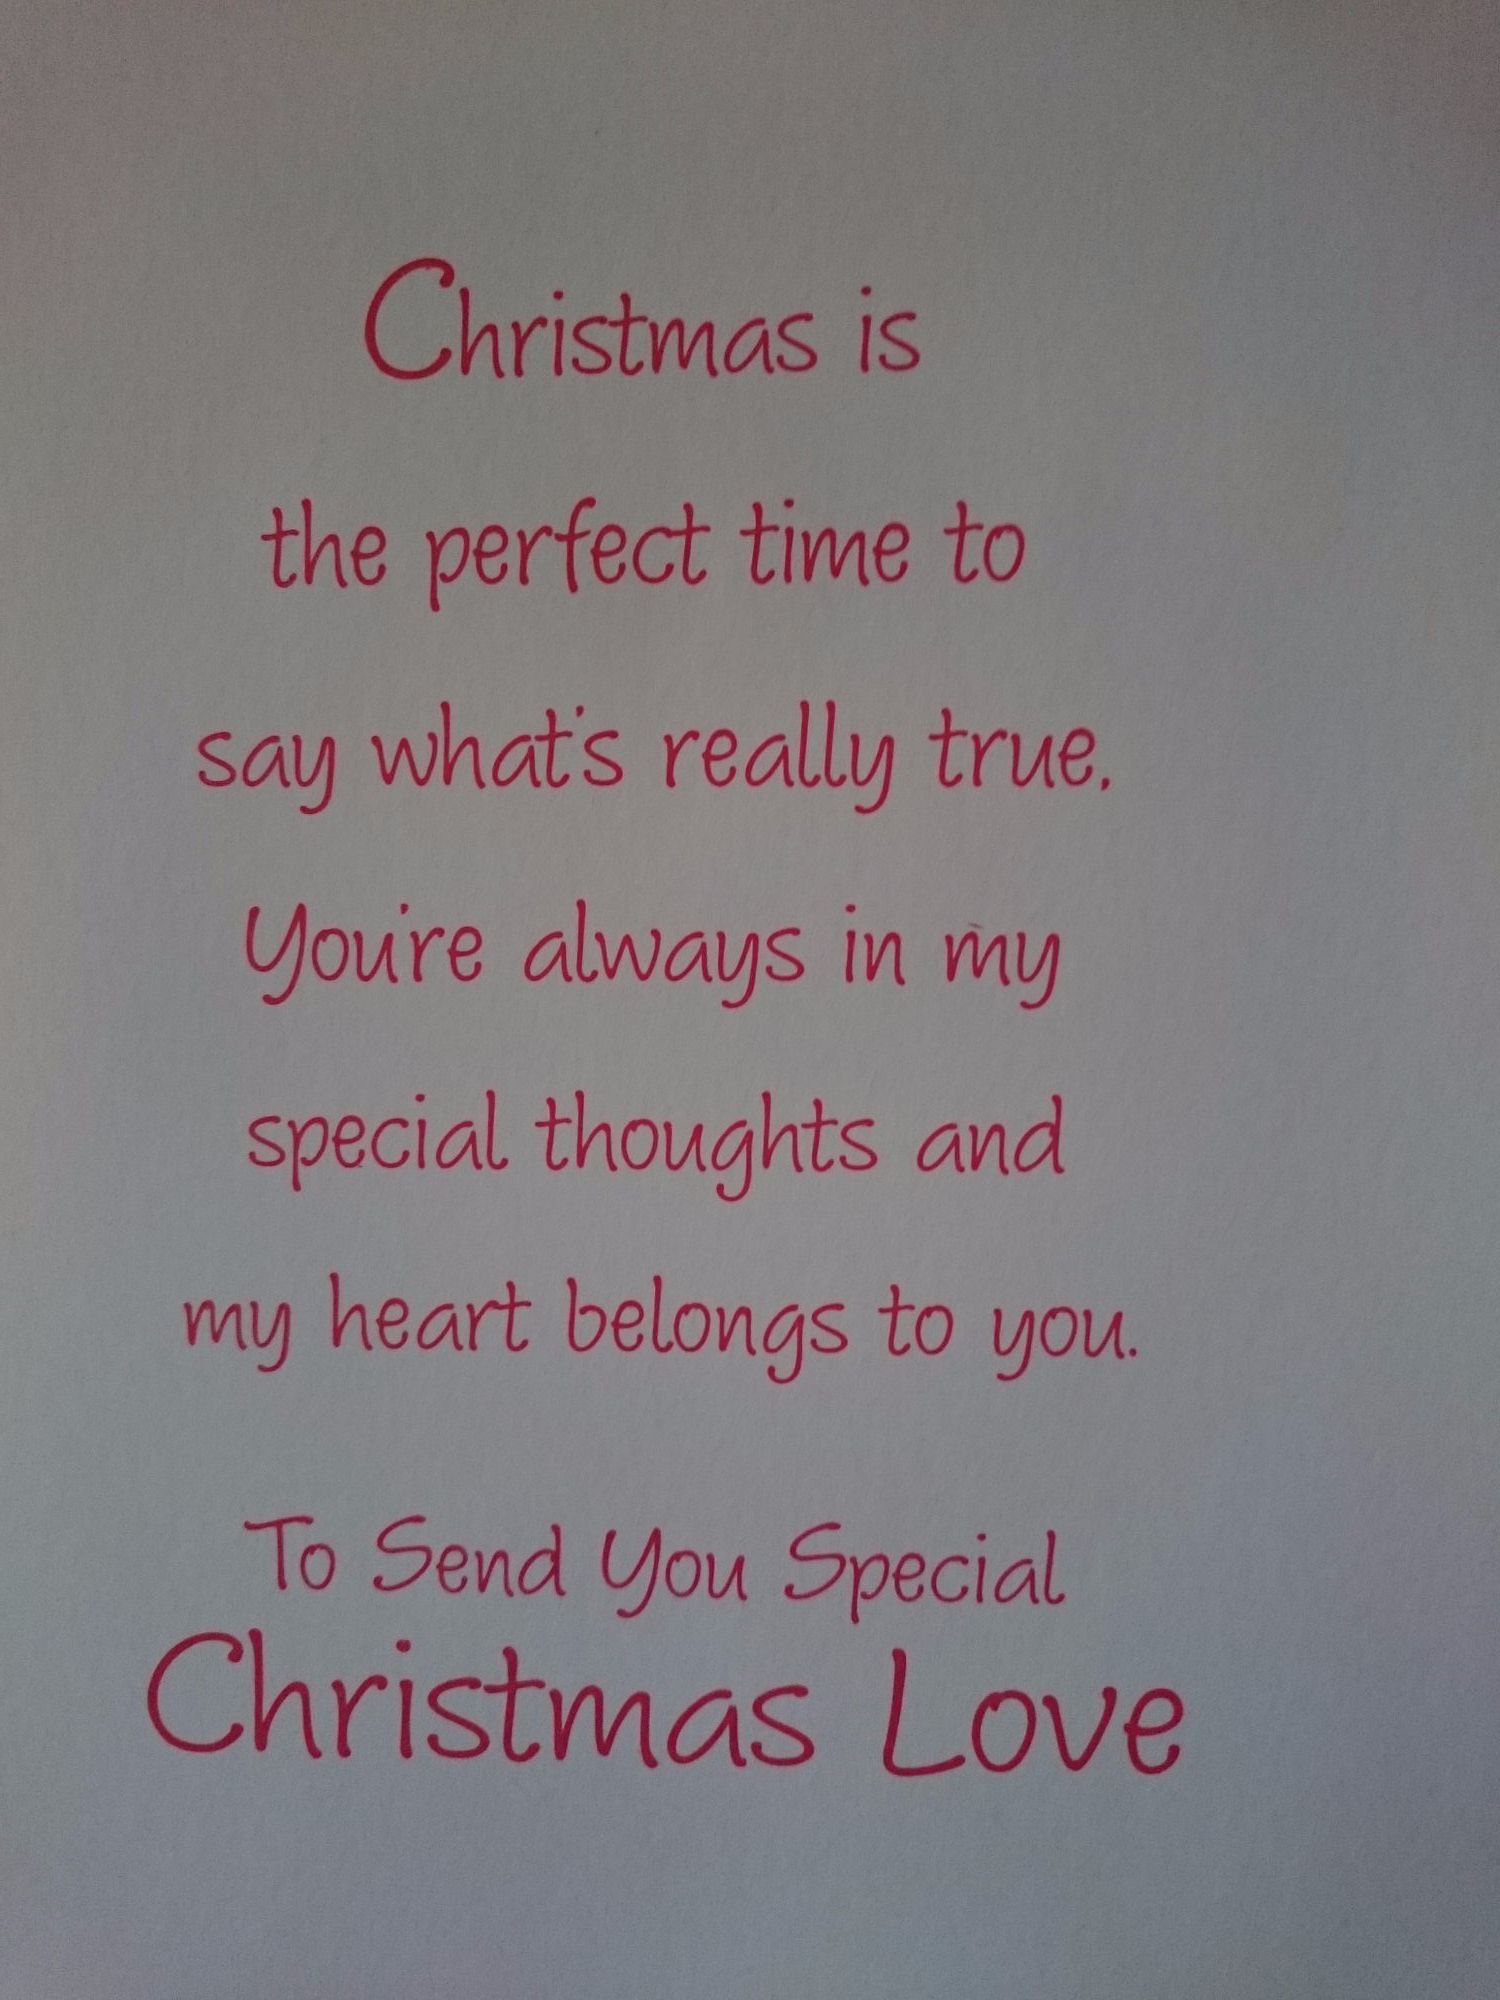 Christmas is
the perfect time to
say what's really true.
You're always in my
special thoughts and
my heart belongs to you.
To Send You Special
Christmas Love